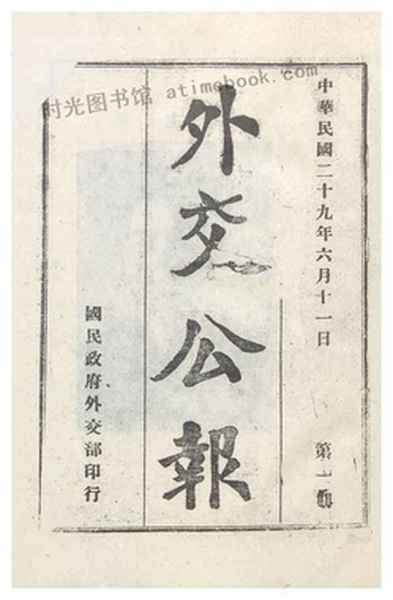 时光图书馆 atimebook.com
中華民國二十九年六月十一日
第一
外交公報
國民政府外交部印行